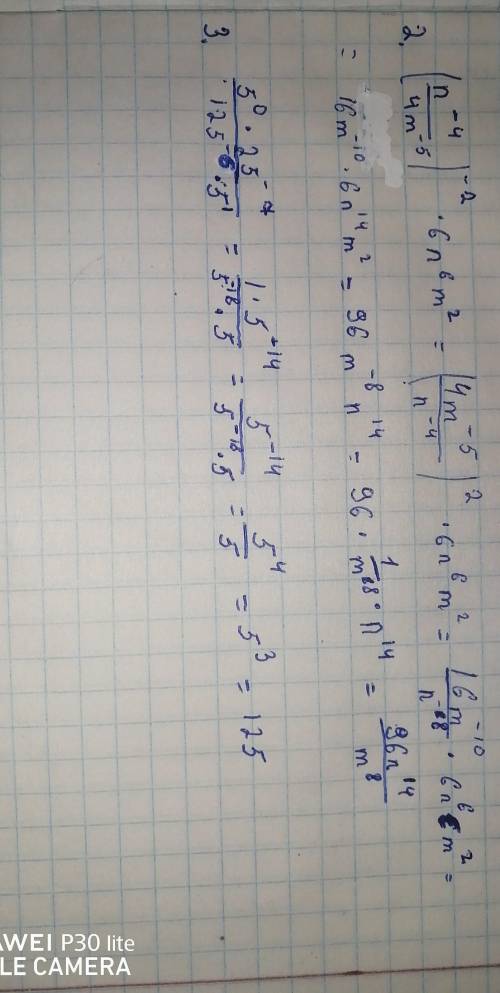 2. (n⁻⁴/4m⁻⁵)⁻² · 6n⁶m² = (4m⁻⁵/n⁻⁴)² · 6n⁶m² = 16m⁻¹⁰/n⁻⁸ · 6n⁶m² =
= 16m⁻¹⁰ · 6n¹⁴m² = 96m⁻⁸n¹⁴ = 96 · 1/m⁸ · n¹⁴ = 96n¹⁴/m⁸
3. 5⁰ · 25⁻⁷/125⁻⁶ · 5¹ = 1 · 5⁻¹⁴/5⁻¹⁸ · 5 = 5⁻¹⁴/5⁻¹⁸ · 5 = 5⁴/5 = 5³ = 125
AWEI P30 lite
LE CAMERA